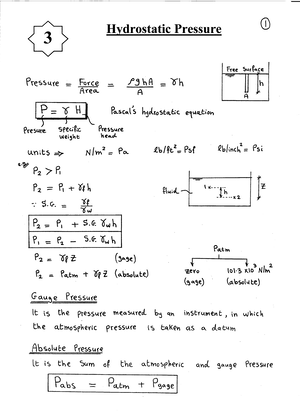 ①
3
Hydrostatic Pressure
Free Surface
h
A
Pressure = Force/Area = ρghA/A = γh
P = γ H
Pascal's hydrostatic equation
Pressure specific weight Pressure head
units ⇒ N/m² = Pa Lb/ft² = Psf Lb/inch² = Psi
P₂ > P₁
P₂ = P₁ + γₗh
∵ S.G. = γₗ/γw
P₂ = P₁ + S.G. γw h
P₁ = P₂ − S.G. γw h
fluid
1
h
2
Z
P₂ = γₗ Z (gage)
P₂ = Patm + γₗ Z (absolute)
Patm
Zero (gage)
101.3 x10³ N/m² (absolute)
Gauge Pressure
It is the pressure measured by an instrument, in which
the atmospheric pressure is taken as a datum
Absolute Pressure
It is the sum of the atmospheric and gauge Pressure
Pabs = Patm + Pgage